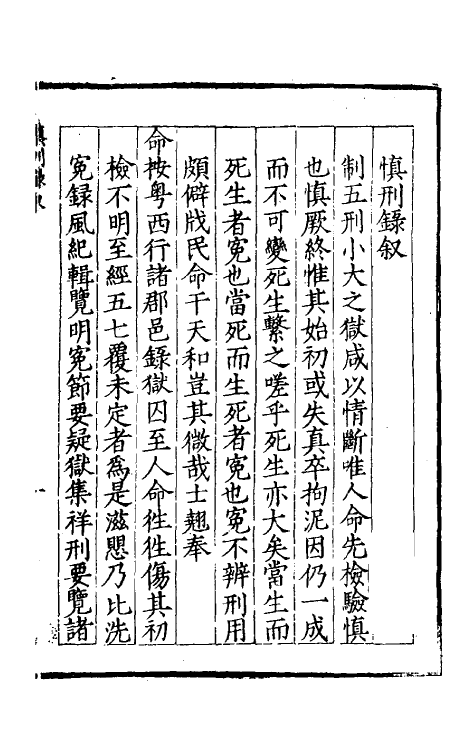 慎刑錄叙
制五刑小大之獄咸以情斷唯人命先檢驗慎
也慎厥終惟其始初或失真卒拘泥因仍一成
而不可變死生繫之嗟乎死生亦大矣當生而
死生者寃也當死而生死者寃也寃不辨刑用
頗僻戕民命干天和豈其微哉士翹奉
命按粤西行諸郡邑錄獄囚至人命徃徃傷其初
檢不明至經五七覆未定者爲是滋懇乃比洗
寃錄風紀輯覽明寃節要疑獄集祥刑要覽諸
一